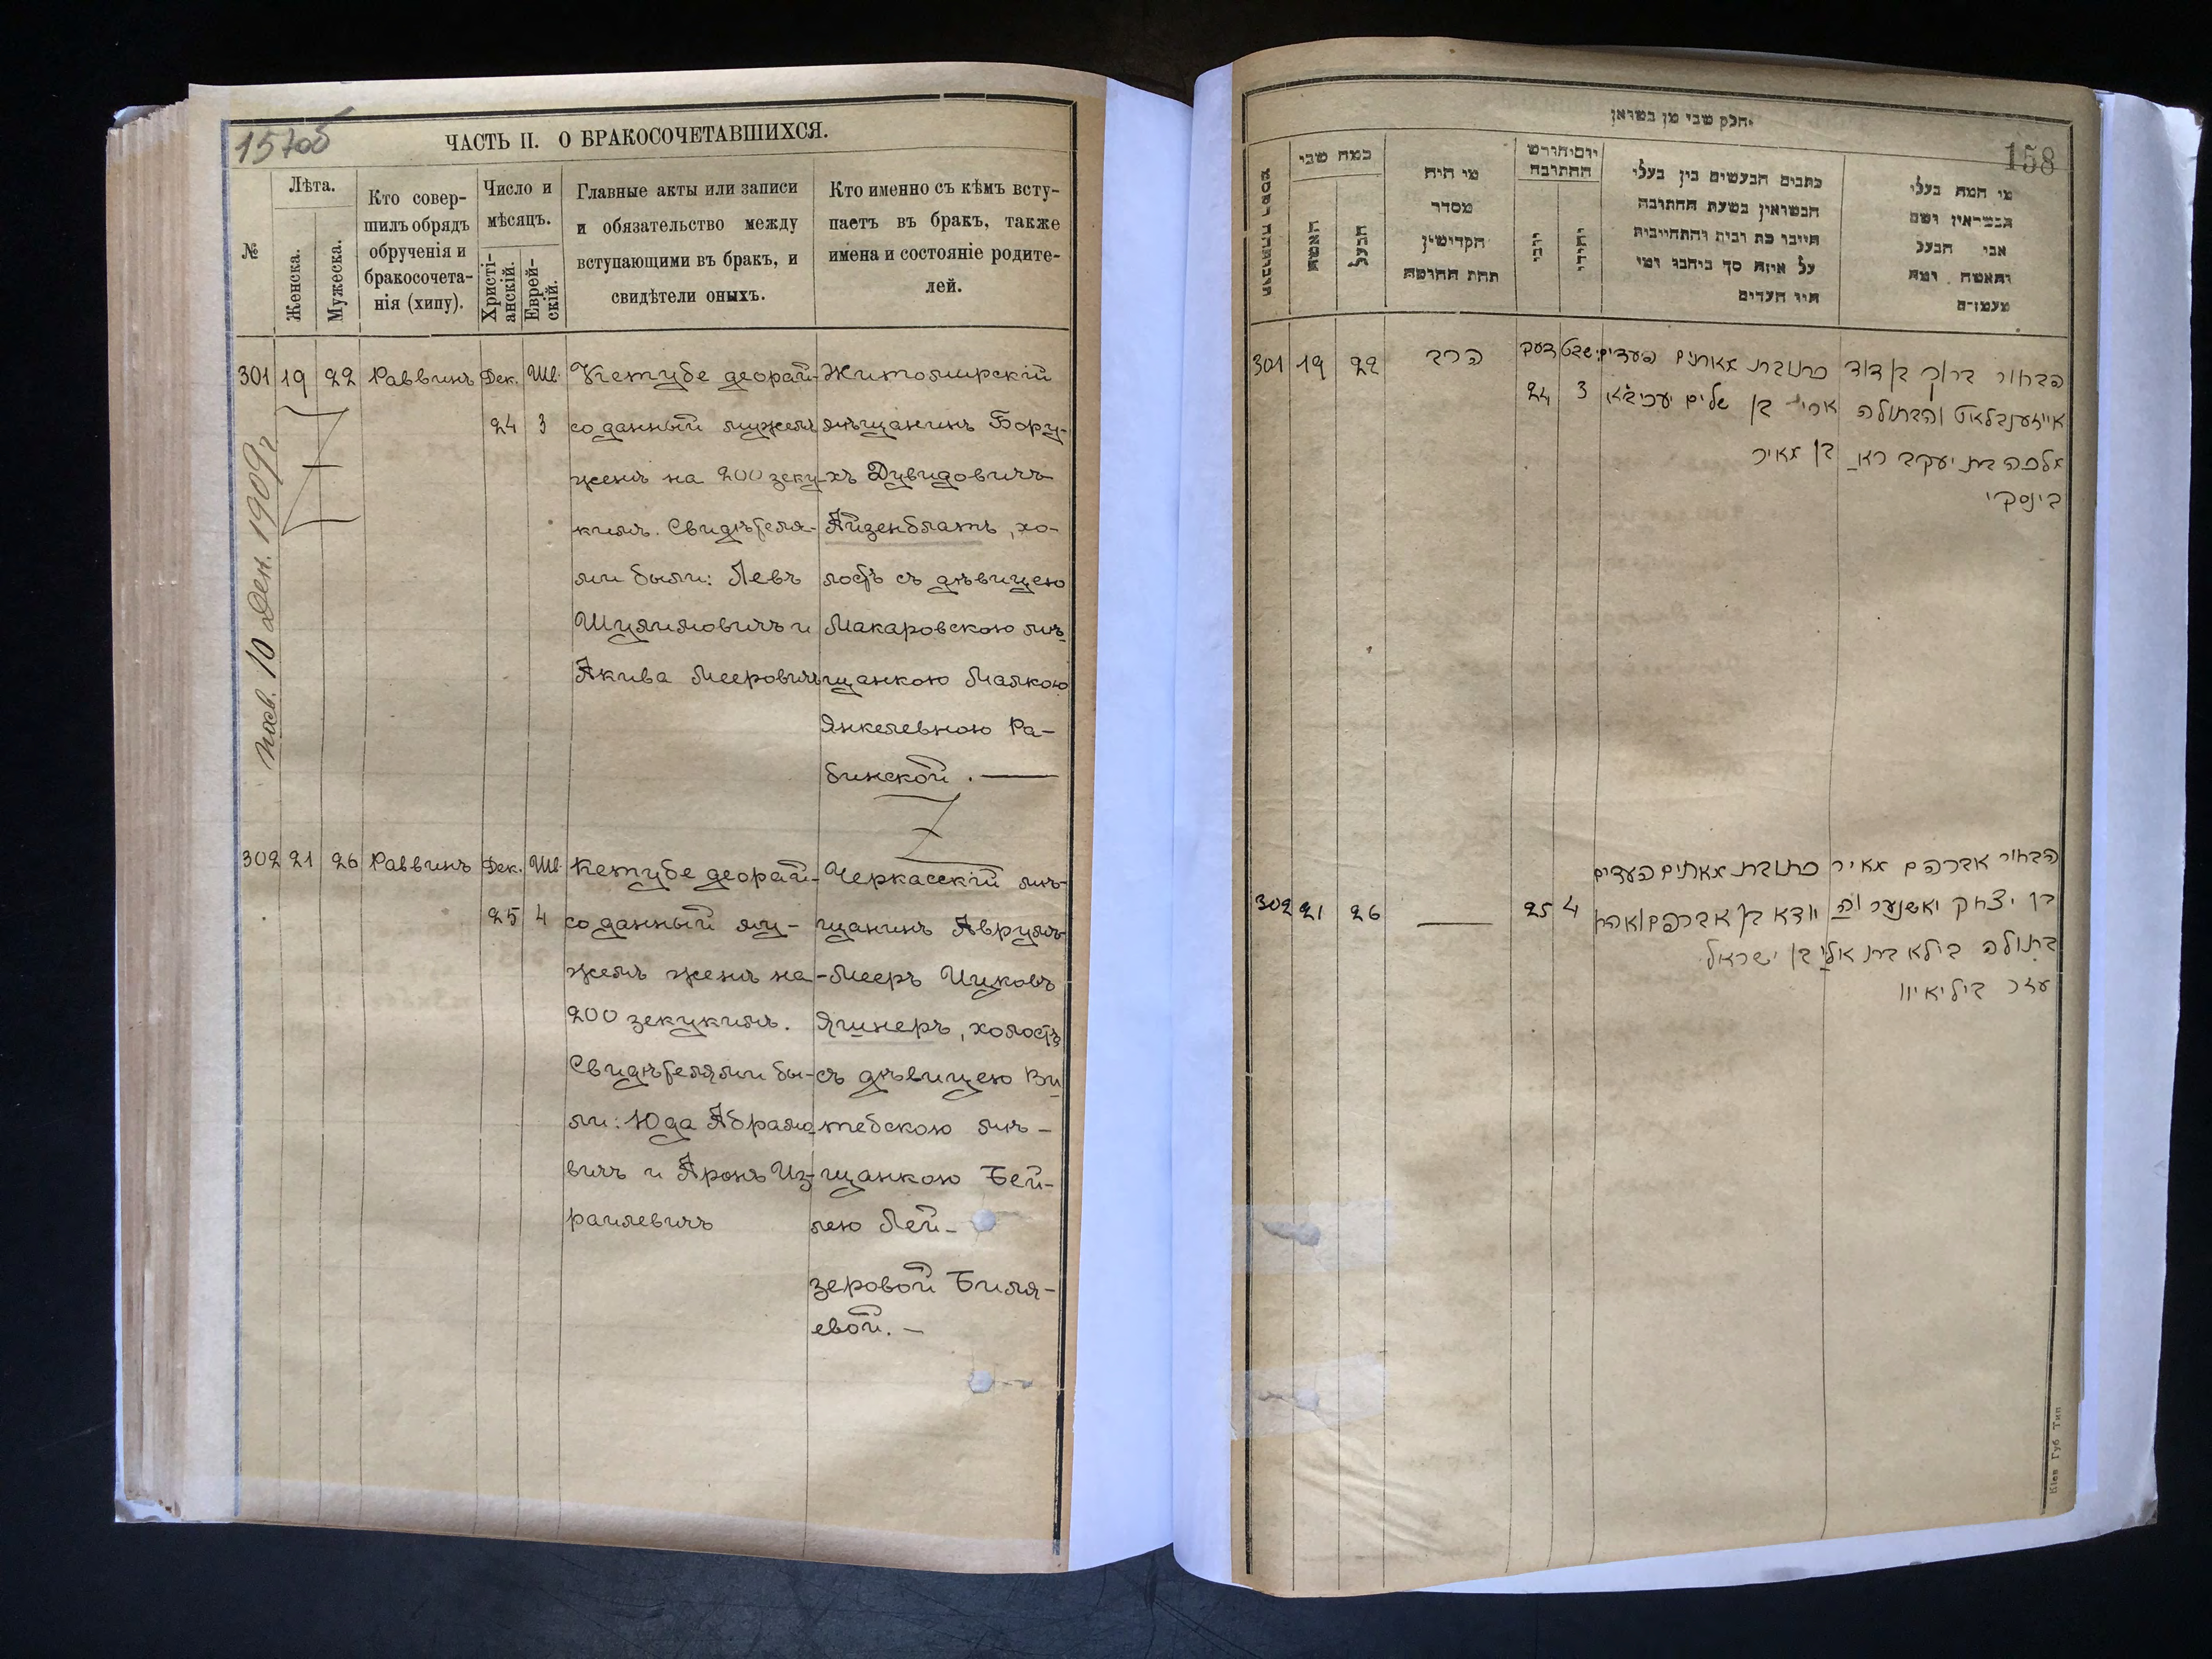 157об
ЧАСТЬ II. О БРАКОСОЧЕТАВШИХСЯ.
№
Лѣта.
Женска.
Мужеска.
Кто совер-
шилъ обрядъ
обрученія и
бракосочета-
нія (хипу).
Число и
мѣсяцъ.
Христі-
анскій.
Еврей-
скій.
Главные акты или записи
и обязательство между
вступающими въ бракъ, и
свидѣтели оныхъ.
Кто именно съ кѣмъ всту-
паетъ въ бракъ, также
имена и состояніе родите-
лей.
301 19 22 Раввинъ Дек. Шв.
24 3
Кетубе деорай-
со данный мужем
женѣ на 200 зеку-
кимъ. Свидѣтеля-
ми были: Левъ
Шулимовичъ и
Акива Мееровичъ
Житомирскій
мѣщанинъ Бору-
хъ Дувидовичъ
Айзенблатъ, хо-
лостъ съ дѣвицею
Макаровскою мѣ-
щанкою Малкою
Янкелевною Ра-
бинской.
10 Ден. 1909 г.
302 21 26 Раввинъ Дек. Шв.
25 4
Кетубе деорай-
со данный му-
жемъ женѣ на
200 зекукимъ.
Свидѣтелями бы-
ли: Юда Абрамо-
вичъ и Аронъ Из-
раилевичъ
Черкасскій мѣ-
щанинъ Аврумъ-
-Мееръ Ицковъ
Яшнеръ, холостъ
съ дѣвицею Ви-
тебскою мѣ-
щанкою Бей-
лею Лей-
зеровой Биля-
евой.
158
יחלק שבי מן בשואן
כמה שבי
האשה
הבעל
מי היה
מסדר
הקדישין
תחת החופה
יום יחורש
החתובה
יהודי
כתבים הנעשים בין בעלי
הנשואין בשעת החתונה
חייבו כת ובית והתחייבות
על איזה סך ביחבו ומי
היו העדים
מי המה בעלי
הנשואין ושם
אבי הבעל
והאשה ומה
מעמדם
301 19 22 הרב דעק שבט
24 3
כתובת מאתים העדים
ארי' בן שלים
בן מאיר
הבחור ברוך בן דוד
אייזענבלאט והבתולה
מלכה בת יעקב רא-
בינסקי
302 21 26 25 4
כתובת מאתים העדים
יודא בן אברהם ואהרן
בן ישראל
הבחור אברהם מאיר
בן יצחק יאשנער וה
בתולה בילא בת אלי
עזר ביליאיוו
Кіев Губ Тип